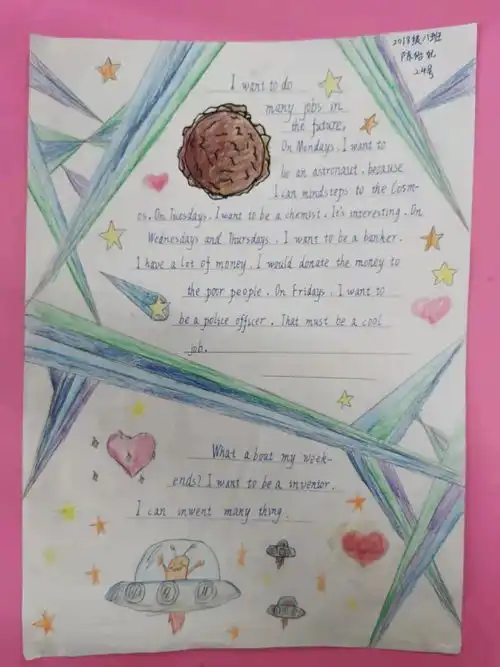 2018级八班
24号
I want to do
many jobs in
the future.
On Mondays, I want to
be an astronaut, because
I can mindsteps to the Cosm-
os. On Tuesdays, I want to be a chemist. It's interesting. On
Wednesdays and Thursdays, I want to be a banker.
I have a lot of money. I would donate the money to
the poor people. On Fridays, I want to
be a police officer. That must be a cool
job.
What about my week-
ends? I want to be a inventor.
I can invent many thing.